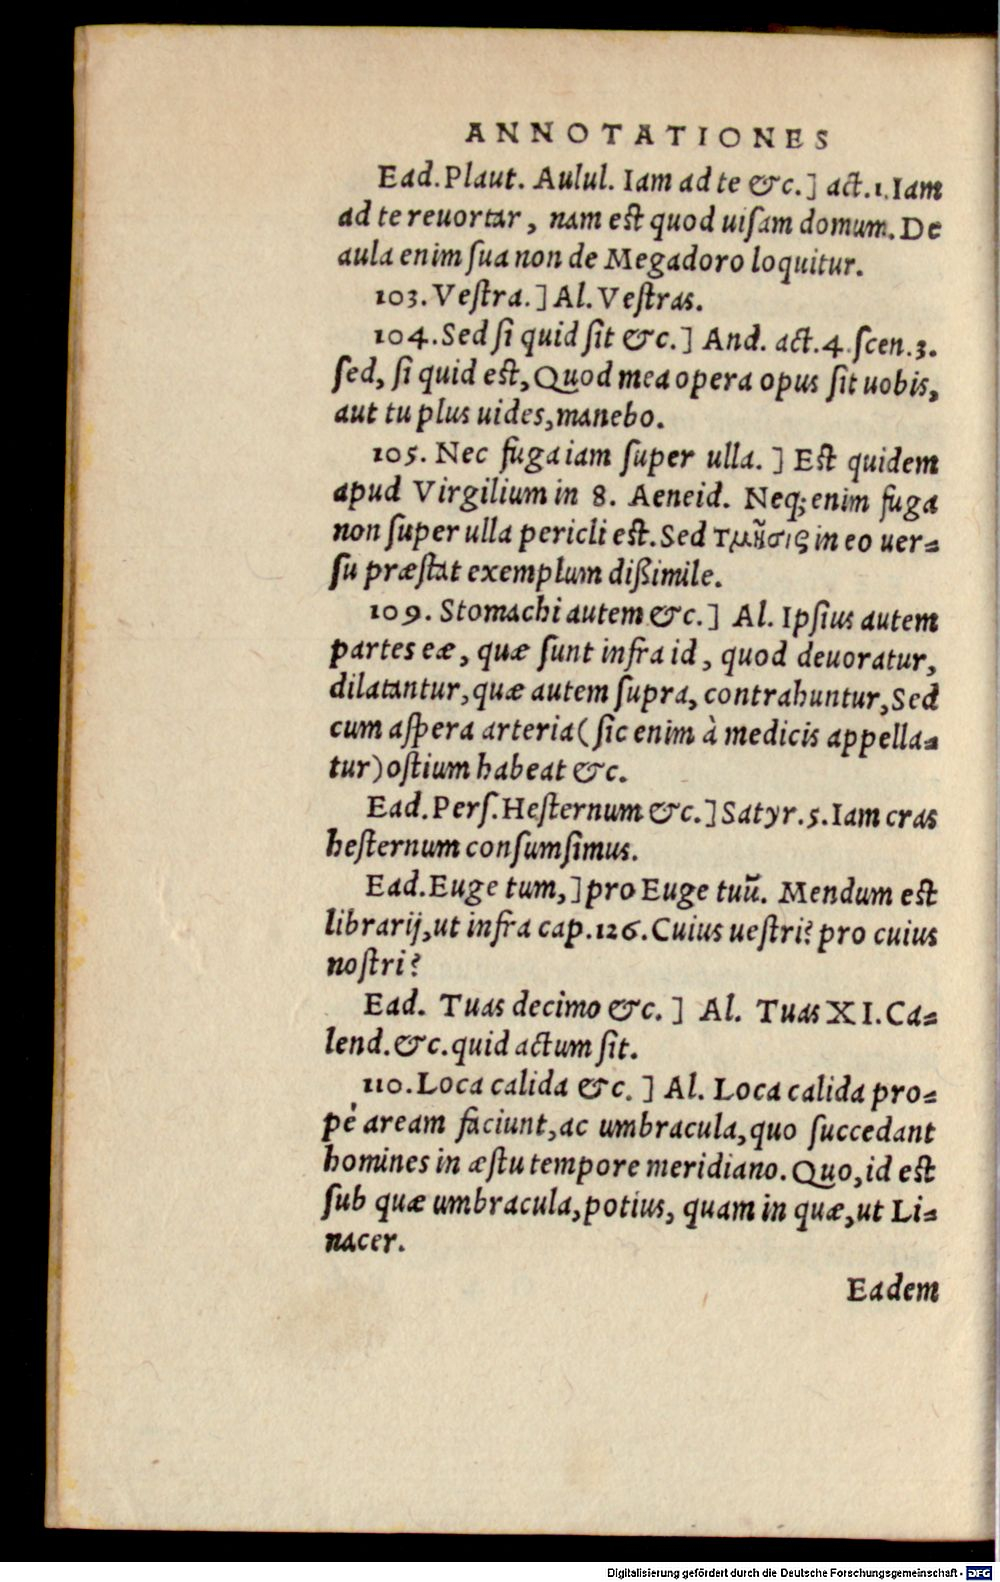 ANNOTATIONES
Ead. Plaut. Aulul. Iam ad te &c.] act.1. Iam
ad te reuortar, nam est quod uisam domum. De
aula enim sua non de Megadoro loquitur.
103. Vestra.] Al. Vestras.
104. Sed si quid sit &c.] And. act.4. scen.3.
sed, si quid est, Quod mea opera opus sit uobis,
aut tu plus uides, manebo.
105. Nec fuga iam super ulla.] Est quidem
apud Virgilium in 8. Aeneid. Neq; enim fuga
non super ulla pericli est. Sed τμῆσις in eo uer=
su præstat exemplum dißimile.
109. Stomachi autem &c.] Al. Ipsius autem
partes eæ, quæ sunt infra id, quod deuoratur,
dilatantur, quæ autem supra, contrahuntur, Sed
cum aspera arteria (sic enim à medicis appella=
tur) ostium habeat &c.
Ead. Pers. Hesternum &c.] Satyr.5. Iam cras
hesternum consumsimus.
Ead. Euge tum,] pro Euge tuũ. Mendum est
librarij, ut infra cap.126. Cuius uestri? pro cuius
nostri?
Ead. Tuas decimo &c.] Al. Tuas XI. Ca=
lend. &c. quid actum sit.
110. Loca calida &c.] Al. Loca calida pro=
pè aream faciunt, ac umbracula, quo succedant
homines in æstu tempore meridiano. Quo, id est
sub quæ umbracula, potius, quam in quæ, ut Li=
nacer.
Eadem
Digitalisierung gefördert durch die Deutsche Forschungsgemeinschaft - DFG